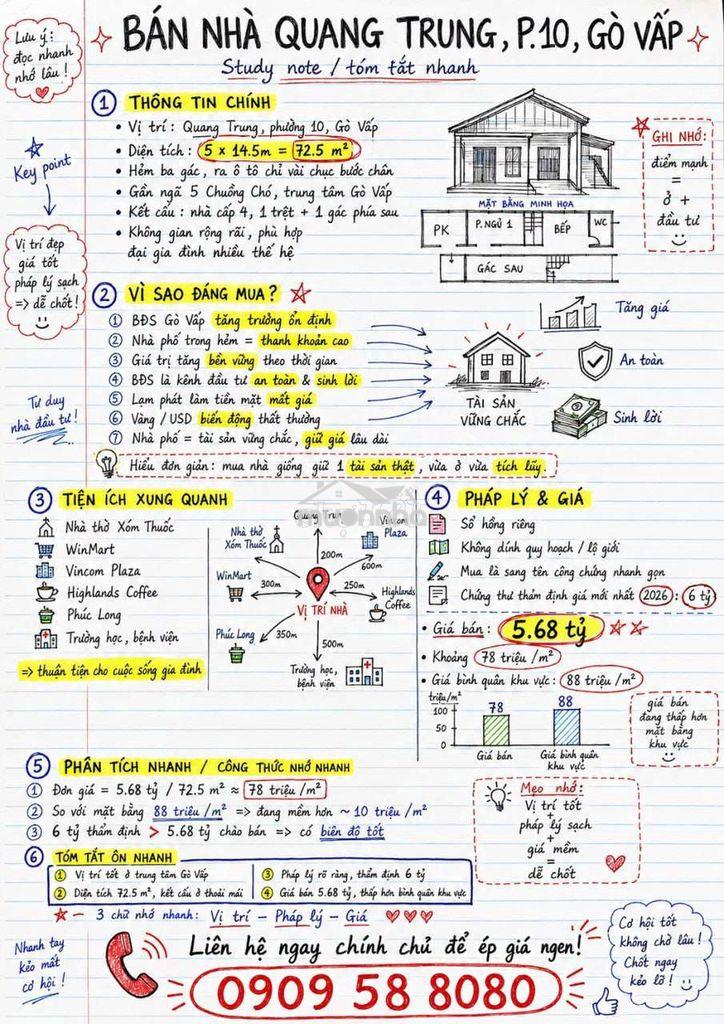 Lưu ý:
đọc nhanh
nhớ lâu!
BÁN NHÀ QUANG TRUNG, P.10, GÒ VẤP
Study note / tóm tắt nhanh
1 THÔNG TIN CHÍNH
• Vị trí: Quang Trung, phường 10, Gò Vấp
• Diện tích: 5 x 14.5m = 72.5 m²
• Hẻm ba gác, ra ô tô chỉ vài chục bước chân
• Gần ngã 5 Chuồng Chó, trung tâm Gò Vấp
• Kết cấu: nhà cấp 4, 1 trệt + 1 gác phía sau
• Không gian rộng rãi, phù hợp
đại gia đình nhiều thế hệ
Key point
Vị trí đẹp
giá tốt
pháp lý sạch
=> dễ chốt!
MẶT BẰNG MINH HỌA
PK
P.NGỦ 1
BẾP
WC
GÁC SAU
GHI NHỚ:
điểm mạnh
=
ở +
đầu tư
2 VÌ SAO ĐÁNG MUA?
1 BĐS Gò Vấp tăng trưởng ổn định
2 Nhà phố trong hẻm = thanh khoản cao
3 Giá trị tăng bền vững theo thời gian
4 BĐS là kênh đầu tư an toàn & sinh lời
5 Lạm phát làm tiền mặt mất giá
6 Vàng / USD biến động thất thường
7 Nhà phố = tài sản vững chắc, giữ giá lâu dài
Tư duy
nhà đầu tư!
TÀI SẢN
VỮNG CHẮC
Tăng giá
An toàn
Sinh lời
Hiểu đơn giản: mua nhà giống giữ 1 tài sản thật, vừa ở vừa tích lũy.
3 TIỆN ÍCH XUNG QUANH
Nhà thờ Xóm Thuốc
WinMart
Vincom Plaza
Highlands Coffee
Phúc Long
Trường học, bệnh viện
=> thuận tiện cho cuộc sống gia đình
Quang Trung
200m
Nhà thờ
Xóm Thuốc
Vincom
Plaza
600m
WinMart
300m
VỊ TRÍ NHÀ
250m
Highlands
Coffee
Phúc Long
350m
500m
Trường học,
bệnh viện
muonnha
4 PHÁP LÝ & GIÁ
Sổ hồng riêng
Không dính quy hoạch / lộ giới
Mua là sang tên công chứng nhanh gọn
Chứng thư thẩm định giá mới nhất 2026: 6 tỷ
• Giá bán: 5.68 tỷ
• Khoảng 78 triệu /m²
• Giá bình quân khu vực: 88 triệu /m²
triệu/m²
100
50
0
78
88
Giá bán
Giá bình quân
khu vực
giá bán
đang thấp hơn
mặt bằng
khu vực
5 PHÂN TÍCH NHANH / CÔNG THỨC NHỚ NHANH
1 Đơn giá = 5.68 tỷ / 72.5 m² ≈ 78 triệu /m²
2 So với mặt bằng 88 triệu /m² => đang mềm hơn ~ 10 triệu /m²
3 6 tỷ thẩm định > 5.68 tỷ chào bán => có biên độ tốt
Mẹo nhớ:
Vị trí tốt
+
pháp lý sạch
+
giá mềm
=
dễ chốt
6 TÓM TẮT ÔN NHANH
1 Vị trí tốt ở trung tâm Gò Vấp
2 Diện tích 72.5 m², kết cấu ở thoải mái
3 Pháp lý rõ ràng, thẩm định 6 tỷ
4 Giá bán 5.68 tỷ, thấp hơn bình quân khu vực
– 3 chữ nhớ nhanh: Vị trí – Pháp lý – Giá
Nhanh tay
kẻo mất
cơ hội!
Liên hệ ngay chính chủ để ép giá ngen!
0909 58 8080
Cơ hội tốt
không chờ lâu!
Chốt ngay
kẻo lỡ!